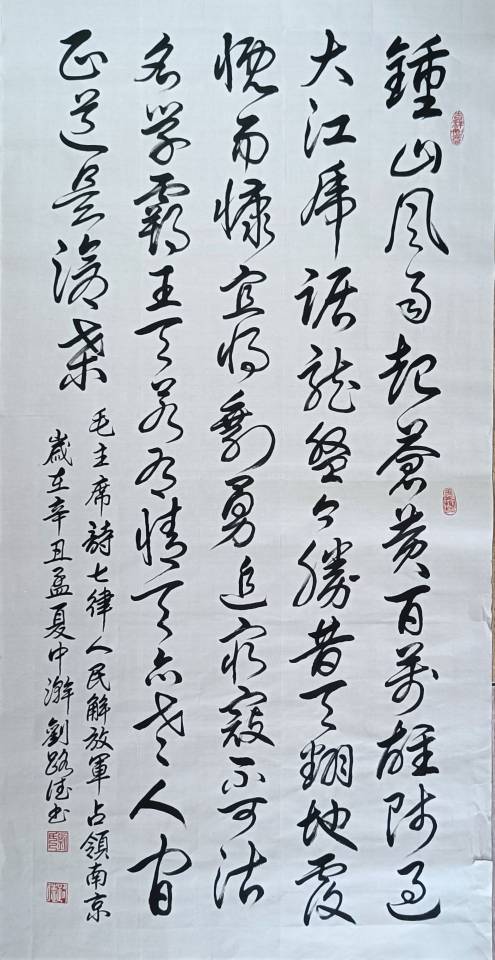 鍾山风雨起蒼黄百萬雄師過
大江虎踞龍盤今勝昔天翻地覆
慨而慷宜將剩勇追窮寇不可沽
名学霸王天若有情天亦老人間
正道是滄桑
毛主席詩七律人民解放軍占領南京
歲在辛丑孟夏中澣劉路德书